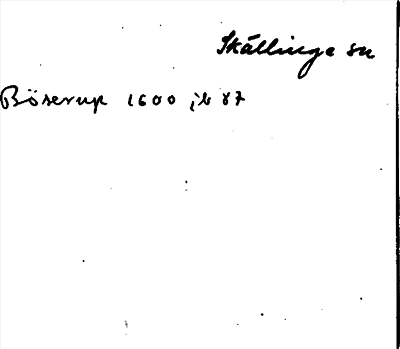 Skällinge sn
Böserup 1600 jb 87